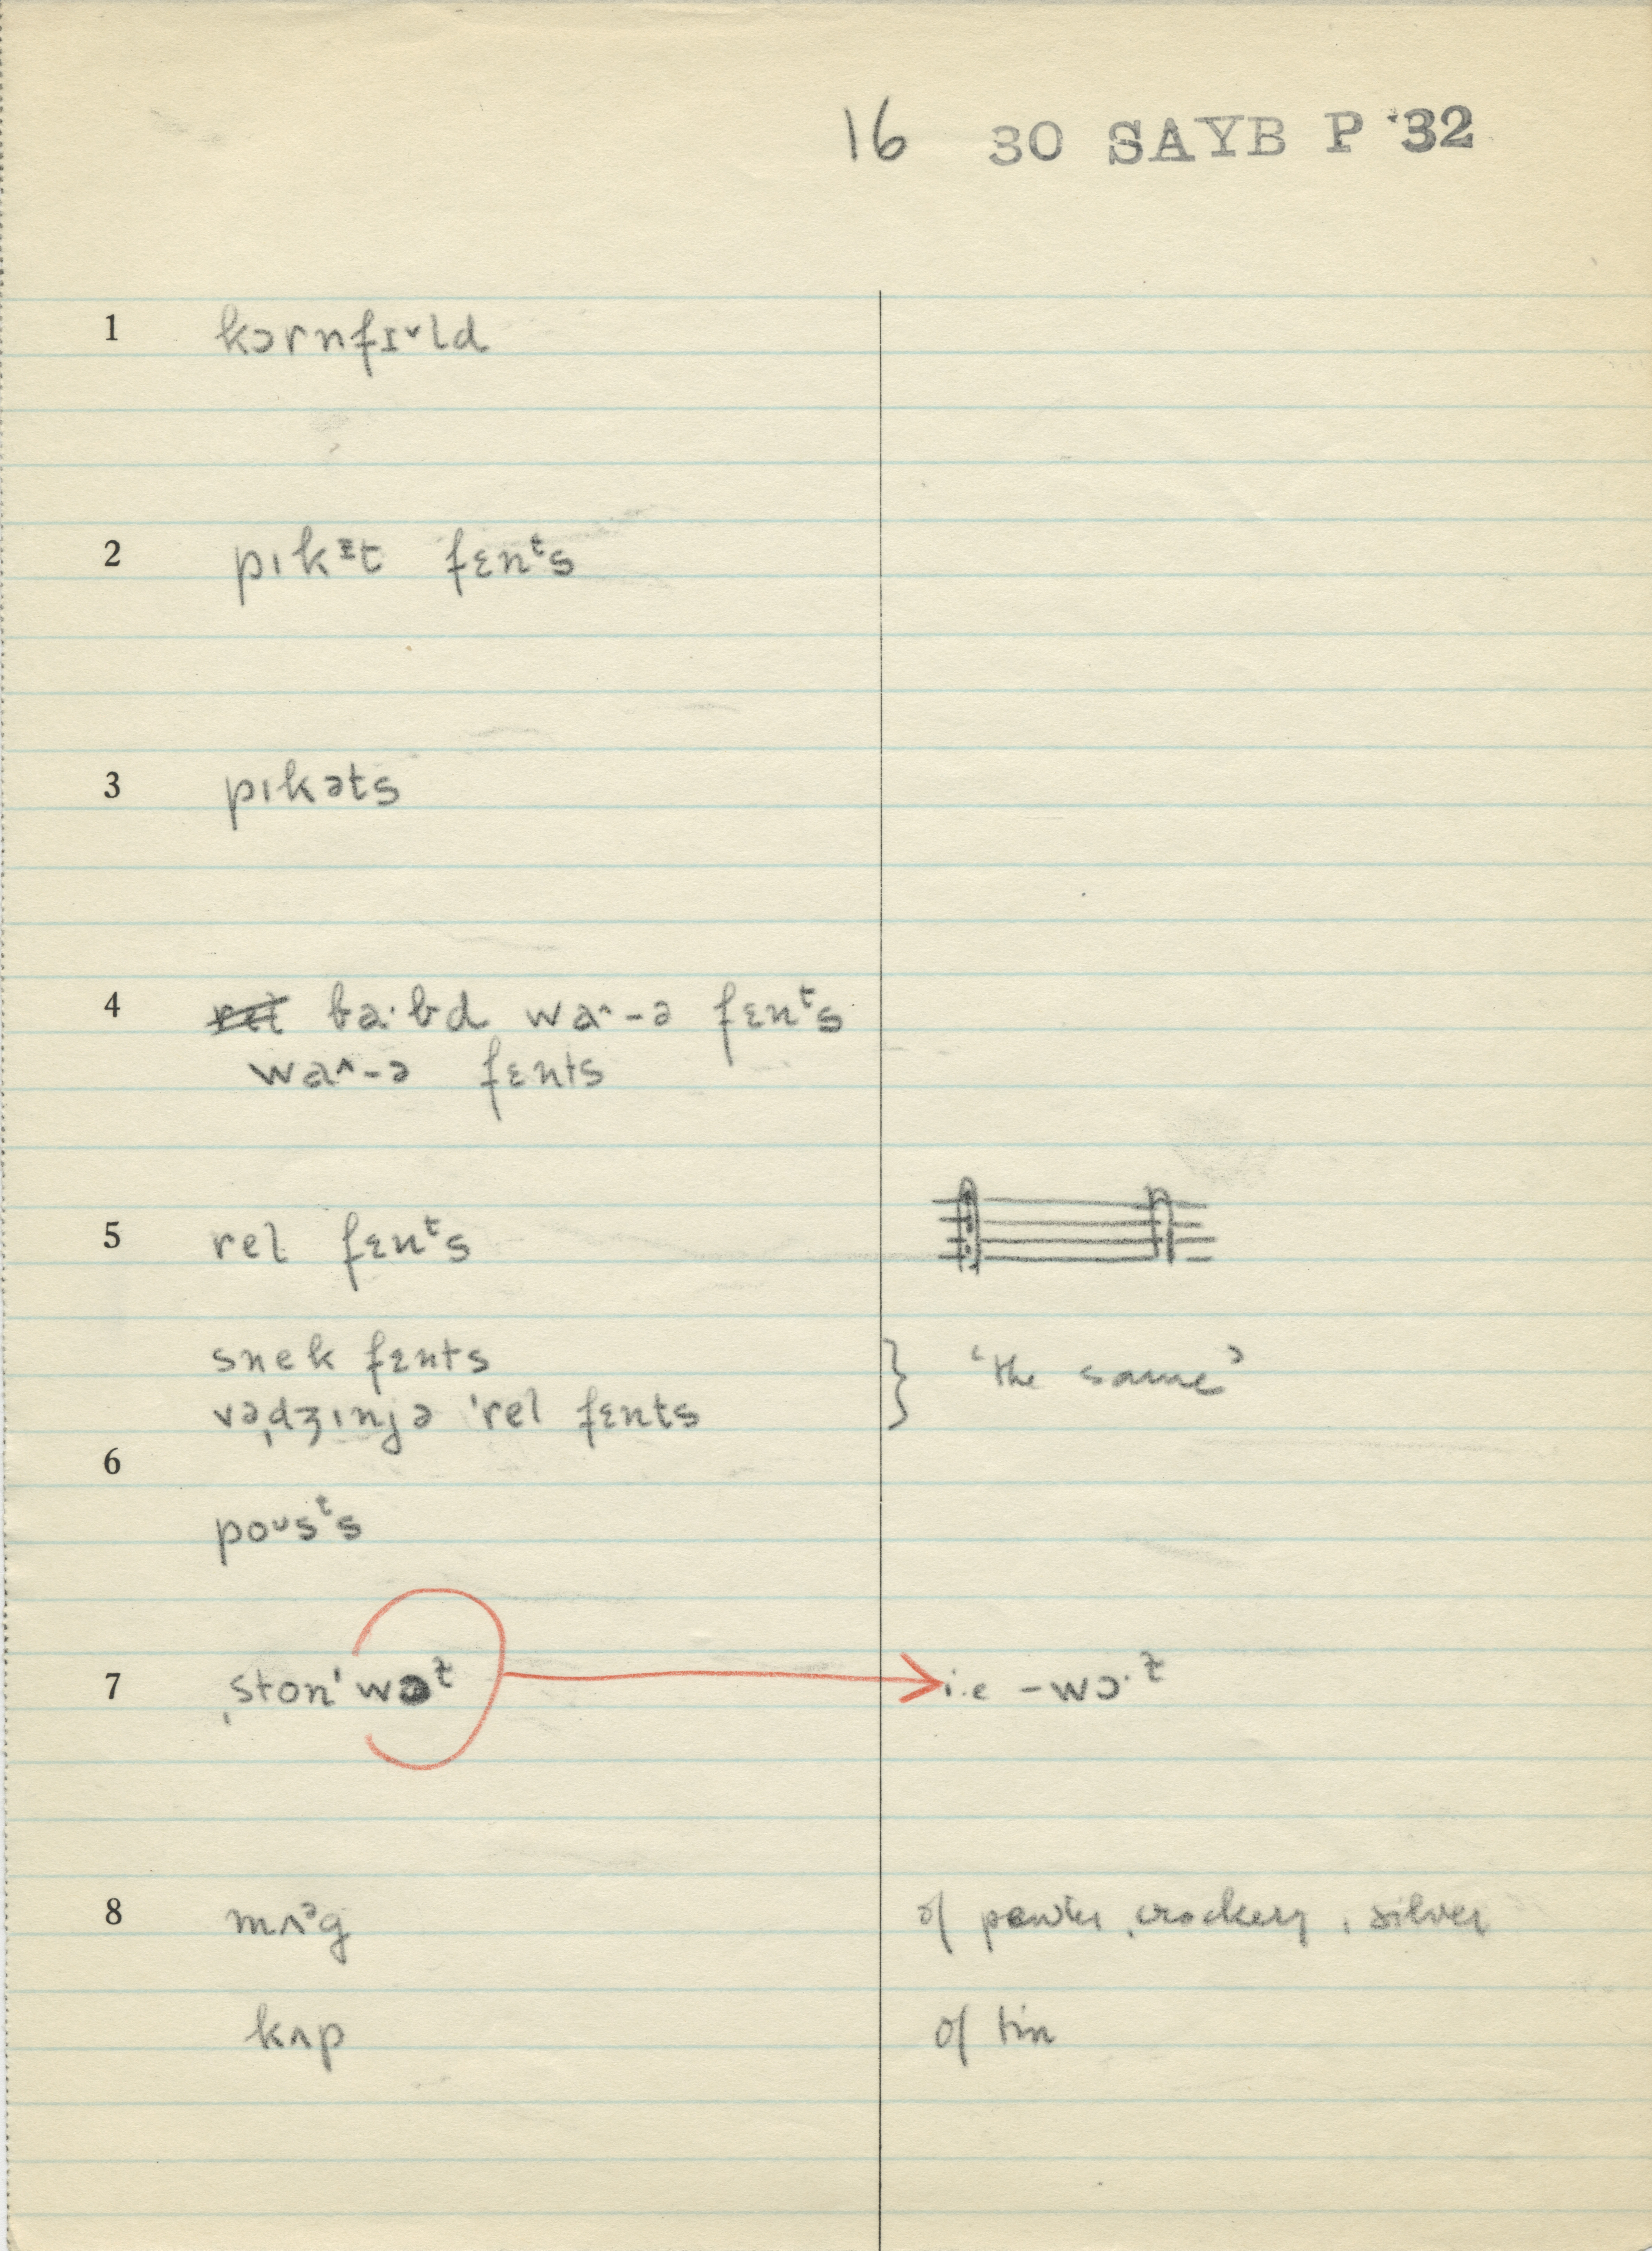 16 30 SAYB P '32
1 kɔrnfɪ˅ld
2 pıkᶦt fɛnᵗs
3 pıkəts
4 ba·bd wa^-ə fɛnᵗs
wa^-ə fɛnts
5 rel fɛnᵗs
snek fɛnts } 'the same'
vəˌdʒınjə 'rel fɛnts
6
poᵘsᵗs
7 ˌston'wɔᵗ i.e -wɔ·ᵗ
8 mʌᵊg of pewter, crockery, silver
kʌp of tin